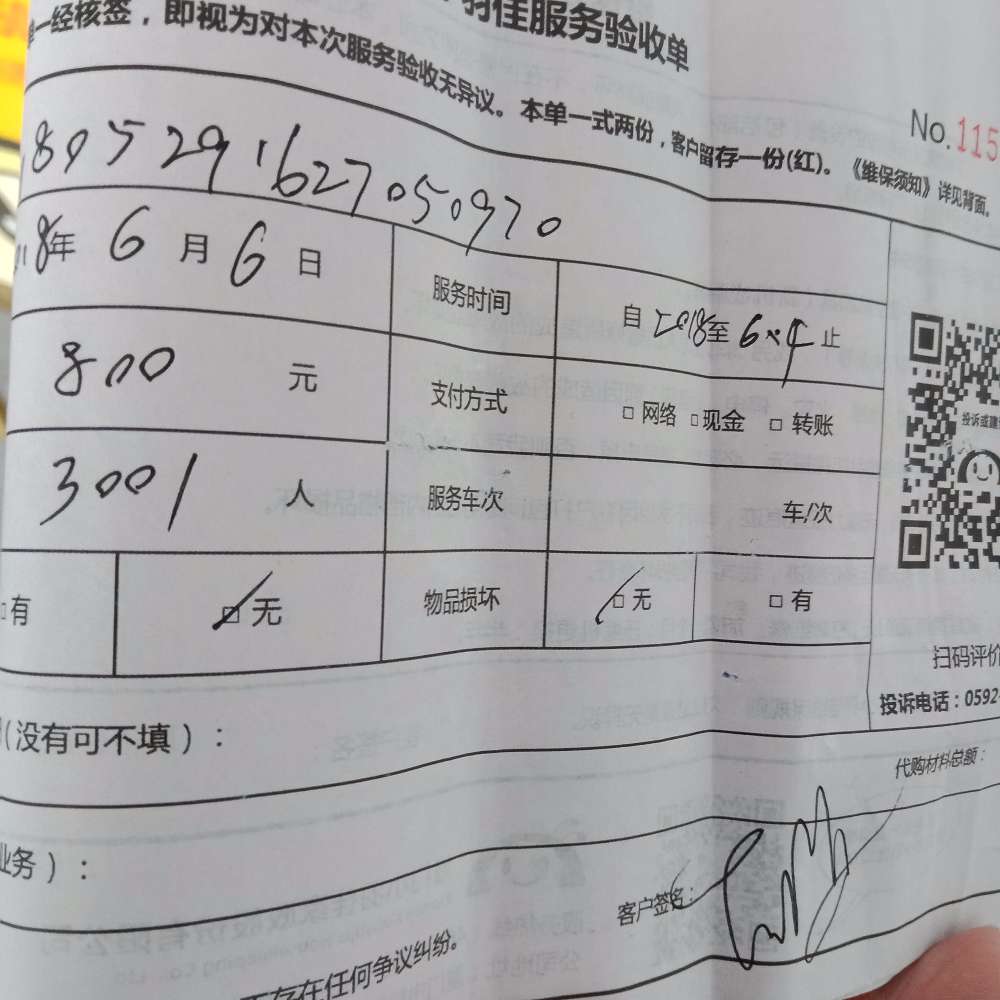 羽佳服务验收单
一经核签，即视为对本次服务验收无异议。本单一式两份，客户留存一份(红)。《维保须知》详见背面。
No.115
805291627050970
18年 6 月 6 日
服务时间
自 2018至 6×4 止
800 元
支付方式
□ 网络 □现金 □ 转账
3001 人
服务车次
车/次
□有
□ 无
物品损坏
□ 无
□ 有
投诉或建
扫码评价
投诉电话：0592-
(没有可不填)：
代购材料总额：
业务)：
客户签名：
存在任何争议纠纷。